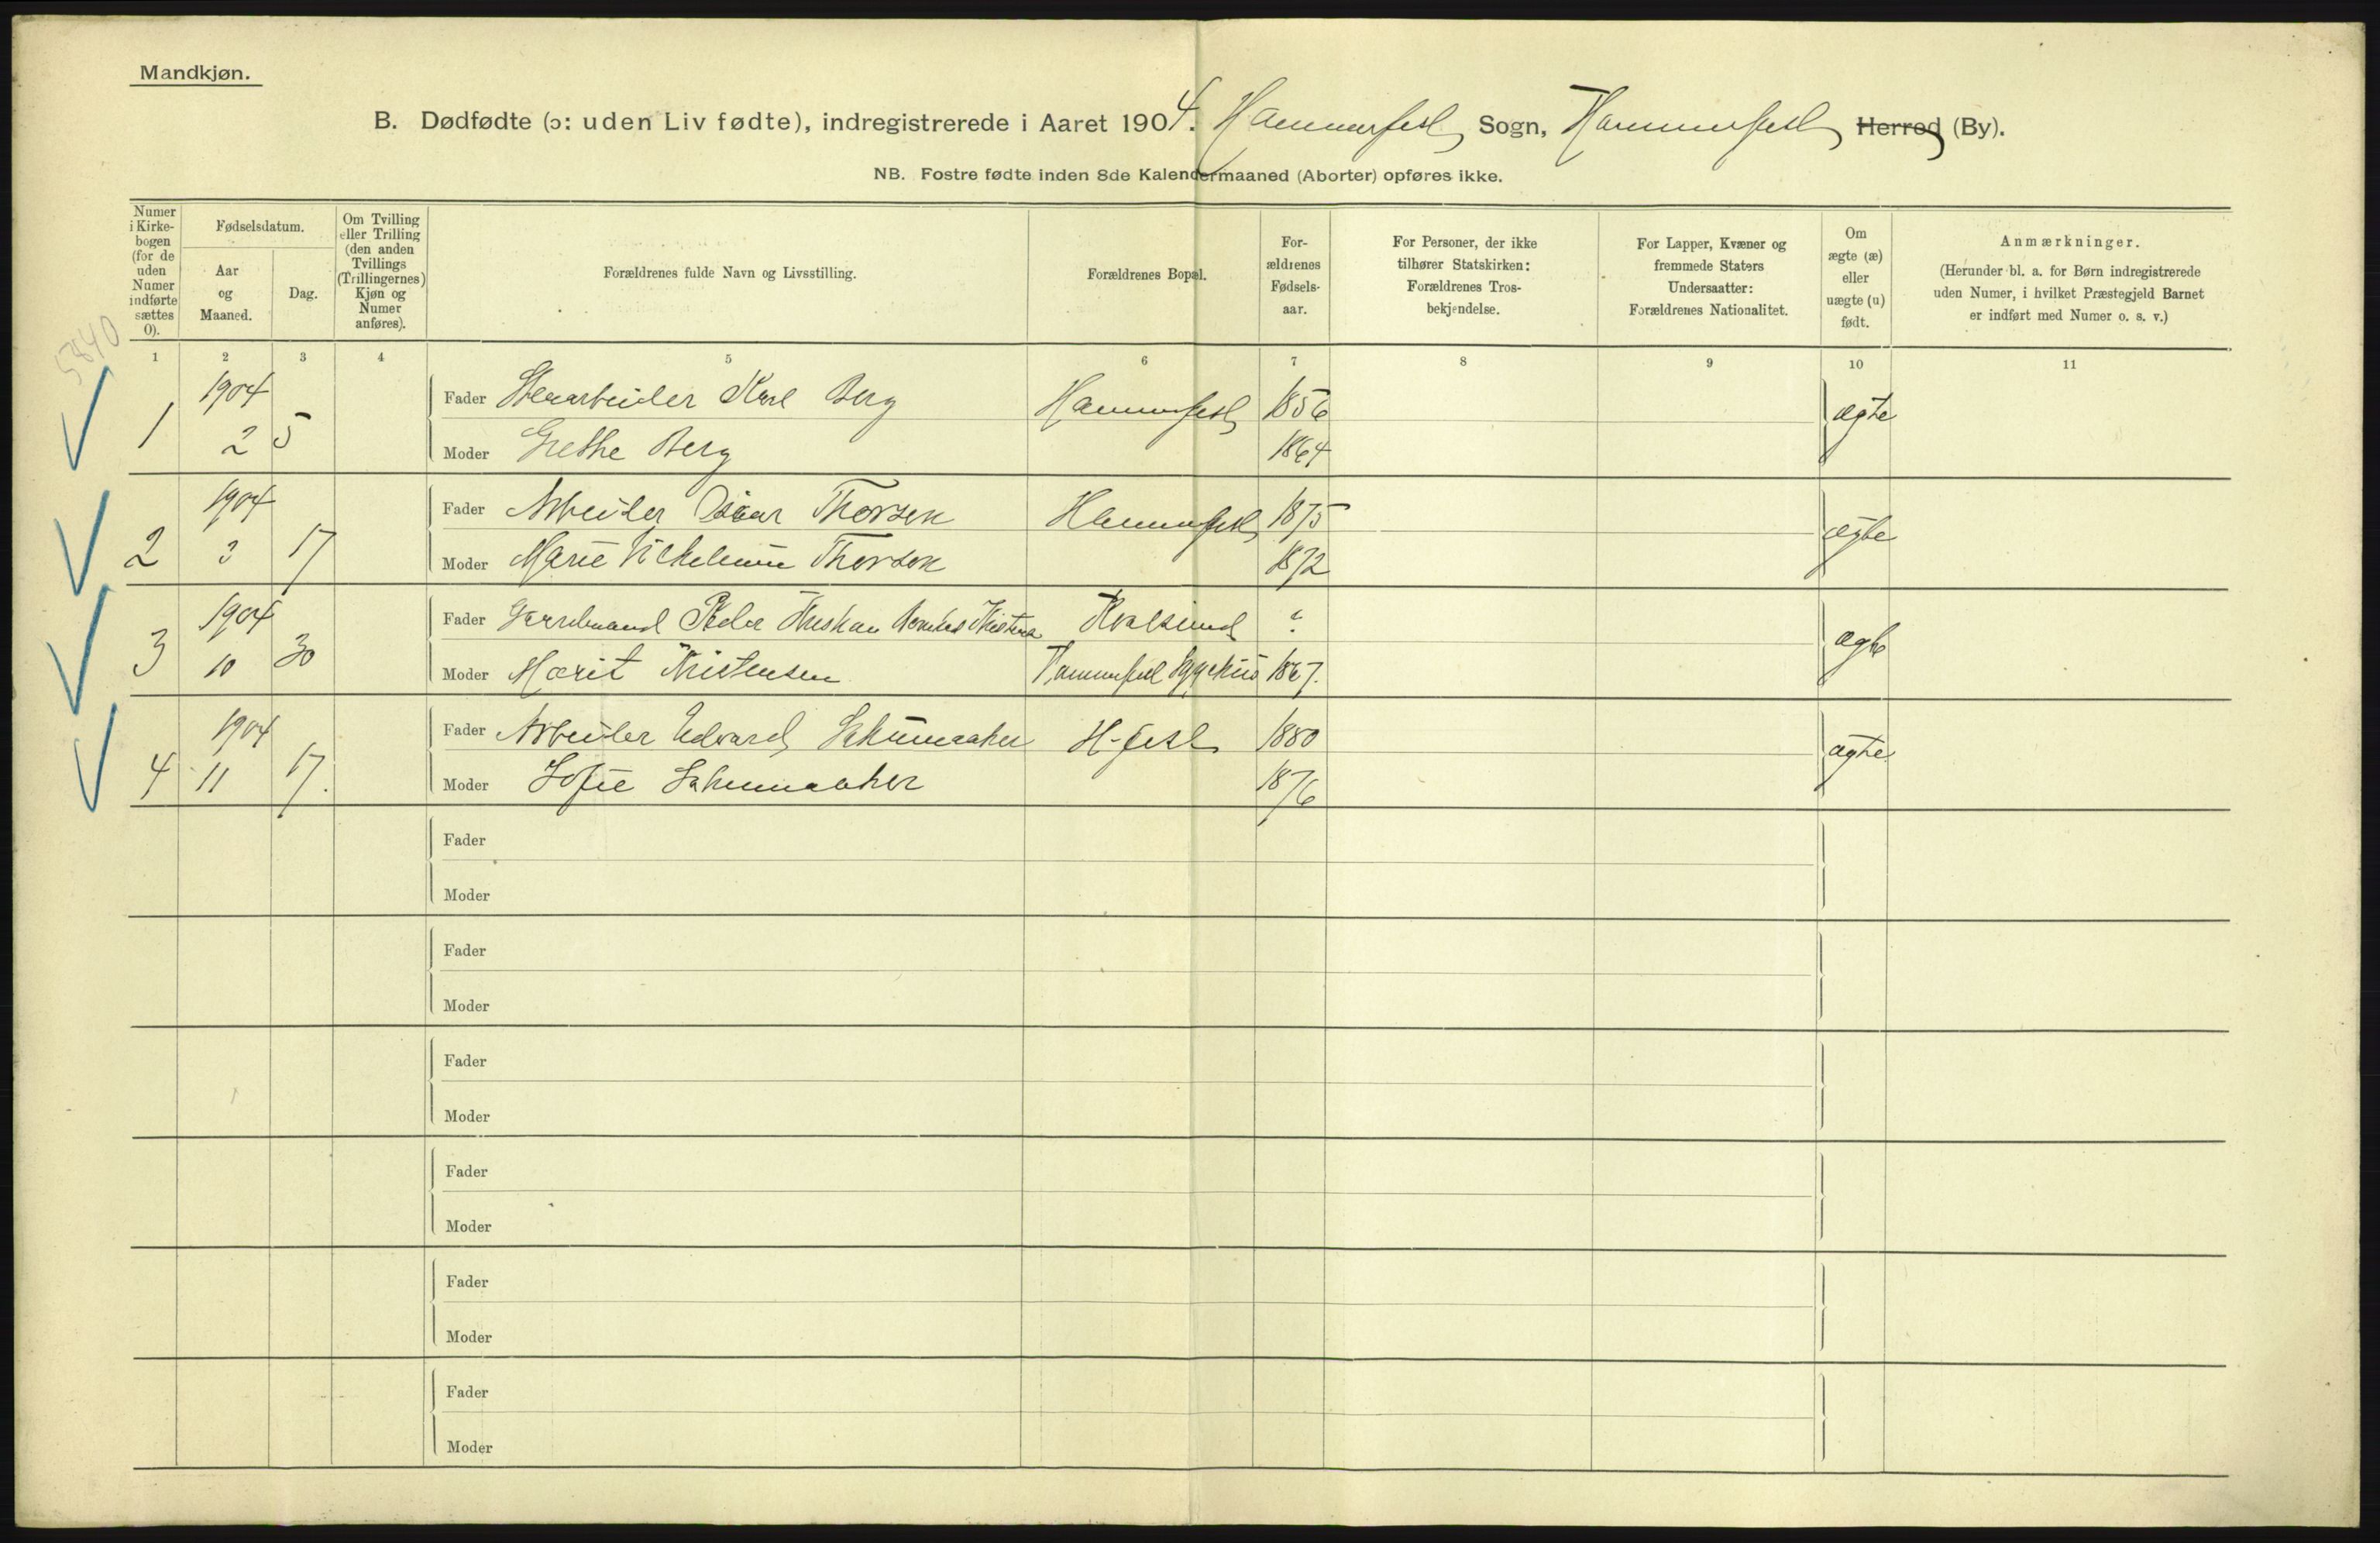 Mandkjøn.
B. Dødfødte (ɔ: uden Liv fødte), indregistrerede i Aaret 1904. Hammerfest Sogn, Hammerfest Herred (By).
NB. Fostre fødte inden 8de Kalendermaaned (Aborter) opføres ikke.
Numer
i Kirke-
bogen
(for de
uden
Numer
indførte
sættes
0).
Fødselsdatum.
Aar
og
Maaned.
Dag.
Om Tvilling
eller Trilling
(den anden
Tvillings
(Trillingernes)
Kjøn og
Numer
anføres).
Forældrenes fulde Navn og Livsstilling.
Forældrenes Bopæl.
For-
ældrenes
Fødsels-
aar.
For Personer, der ikke
tilhører Statskirken:
Forældrenes Tros-
bekjendelse.
For Lapper, Kvæner og
fremmede Staters
Undersaatter:
Forældrenes Nationalitet.
Om
ægte (æ)
eller
uægte (u)
født.
Anmærkninger.
(Herunder bl. a. for Børn indregistrerede
uden Numer, i hvilket Præstegjeld Barnet
er indført med Numer o. s. v.)
5840
1 2 3 4 5 6 7 8 9 10 11
1904 Fader Karl Berg Hammerfest 1856 ægte
1 2 5 Moder Grethe Berg 1864
1904 Fader Arbeider Oscar Thorsen Hammerfest 1875 ægte
2 3 17 Moder Marie Vilhelmine Thorsen 1872
1904 Fader Peder Kvalsund ? ægte
3 10 30 Moder Marit Kristensen Hammerfest Sygehus 1867.
1904 Fader Arbeider Edvard Schumacher H-fest 1880 ægte
4 11 17. Moder Sofie Schumacher 1876
Fader
Moder
Fader
Moder
Fader
Moder
Fader
Moder
Fader
Moder
Fader
Moder